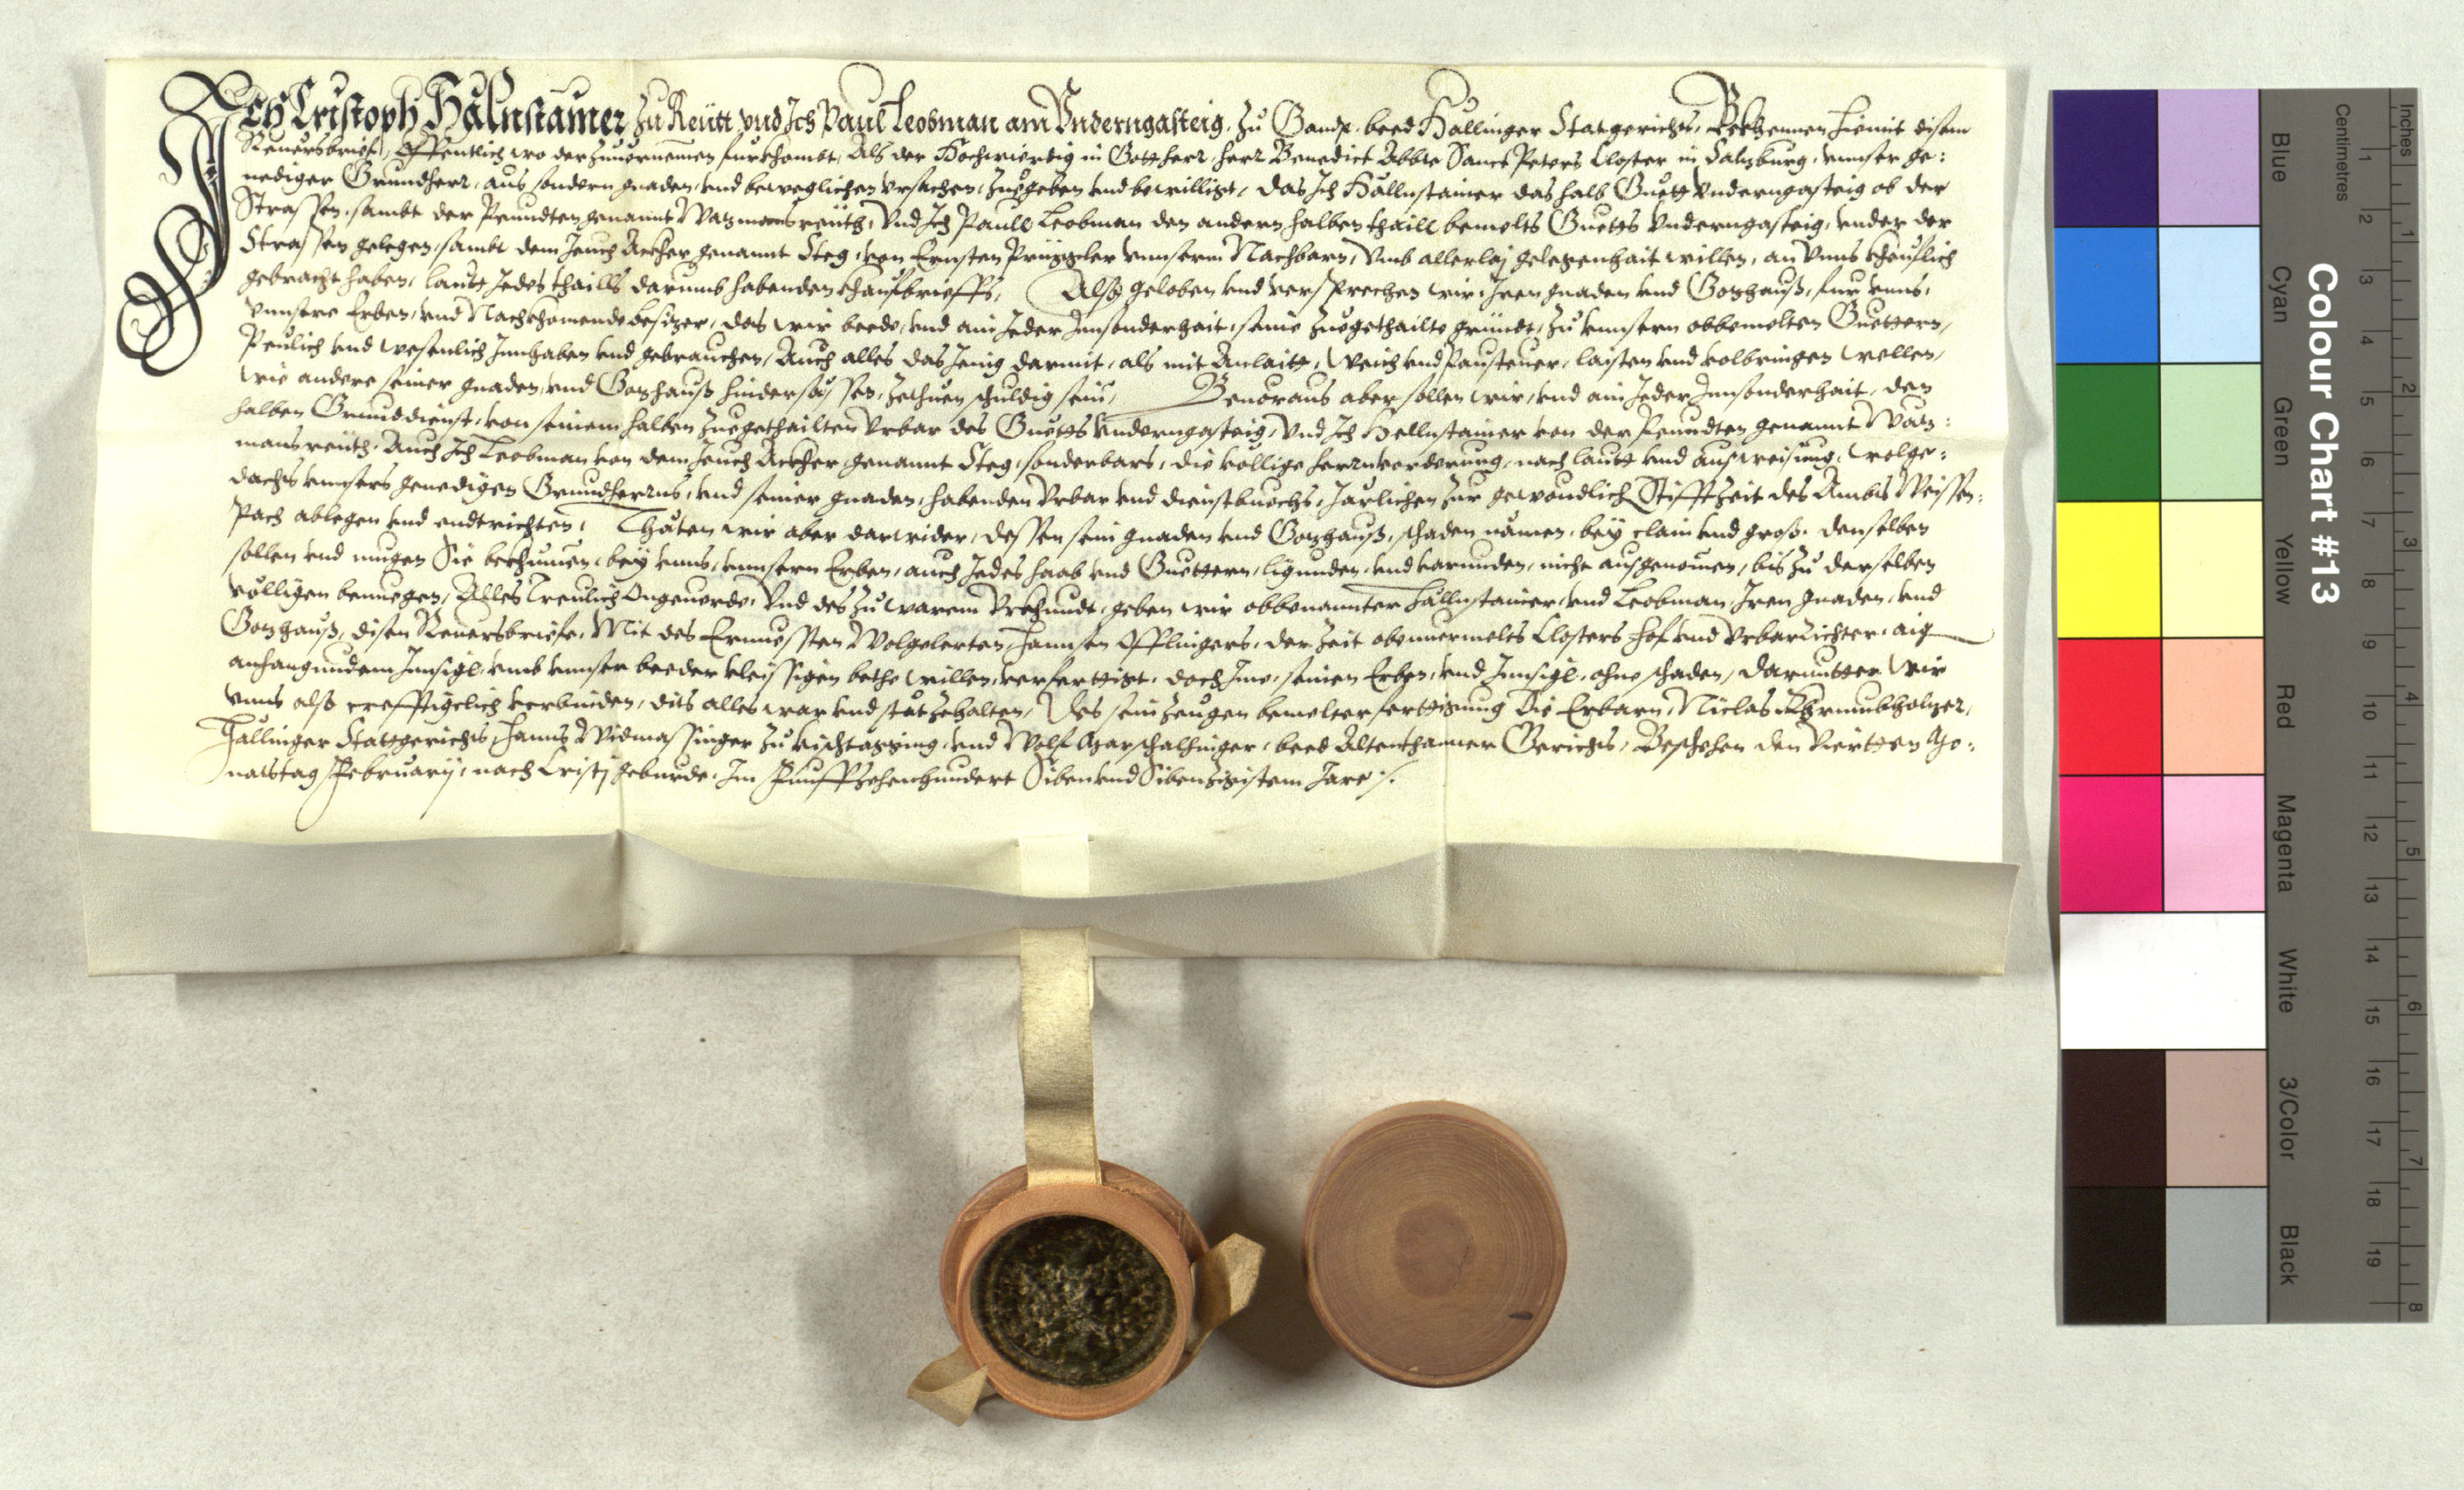 Ich Cristoph Hälnstainer zu Reütt vnd Ich Paul Leobman am Vnderngasteig, zu Gandp. beed Hällinger Statgerichts, Bekhennen hiemit disem
Reuersbrieff, Offentlich wo der zuuernemen furkhombt, Als der Hochwierdig in Gott herr, herr Benedict Abbte Sanct Peters Closter in Salzburg, vnnser ge:
nediger Grundherr, aus sondern gnaden, vnd beweglichen vrsachen, zuegeben vnd bewilligt, das Ich Hällnstainer das halb Guett Vnderngasteig ob der
Strassen, sambt der Peundten genannt Wazmansreüth, Vnd Ich Paull Leobman den andern halben thaill bemelts Guetts Vnderngasteig, vnder der
Strassen gelegen, sambt dem Jeuch Ackher genannt Steg, von Ernsten Prüggler vnnserm Nachbarn, Vmb allerlaj gelegenhait willen, an Vnns kheuflich
gebracht haben, lautt Jedes thaills darumb habenden khaufbrieffs, Also geloben vnd versprechen wir, Iren gnaden vnd Gotzhauß, fur vnns,
vnnsere Erben, vnd Nachkhomende besizer, das wir beede, vnd ain Jeder Innsonderhait, seine zuegethailte gründt, zu vnnsern obbemelten Guettern,
Peulich vnd wesenlich Innhaben vnd gebrauchen, Auch alles das Jenig darmit, als mit Anlaitt, Weich vnd Pausteuer, laisten vnd volbringen wellen,
wie andere seiner gnaden, vnd Gotzhauß hindersässen, zethuen schuldig sein, Beuoraus aber sollen wir, vnd ain Jeder Innsonderhait, den
halben Grunddienst, von seinem halben zuegethailten Vrbar des Guetts Vnderngasteig, Vnd Ich Hellnstainer von der Peundten genannt Waz:
mansreüth, Auch Ich Leobman von dem Jeuch Ackher genannt Steg, sonderbars, die vollige herrnvorderung, nach lautt vnd ausweisung, wolge:
dachts vnnsers genedigen Grundherrns, vnd seiner gnaden, habenden Vrbar vnd dienstbuechs, Järlichen zur gewondlich Stifftzeit des Ambts Weissen:
Pach ablegen vnd endtrichten, Thäten wir aber darwider, dessen sein gnaden vnd Gotzhauß, schaden nämen, bey clain vnd groß, denselben
sollen vnd mugen Sie bekhumen, bey vnns, vnnsern Erben, auch Jedes haab vnd Guettern, ligunden, vnd varunden, nicht ausgenomen, bis zu derselben
völligen benuegen, Alles Treulich Ongeuerde, Vnd des zu warem Vrkhundt, geben wir obbenannter Hällnstainer, vnd Leobman Iren gnaden, vnd
Gotzhauß, disen Reuersbriefe, Mit des Ernuessten Wolgelerten, Hannsen Öfflingers, der zeit obenuermelts Closters Hof vnd Vrbarrichter, aig
anhangundem Innsigl, vmb vnnser beeder vleissigen bethe willen, verferttigt, doch Ime, seinen Erben, vnd Innsigl, ohne schaden, Darunter wir
vnns also creffttigclich verbinden, dits alles war vnd stät zehalten, Des sein zeugen bemelter ferttigung Die Erbarn, Niclas
Hällinger Stattgerichts, Hanns Widmassinger zu, vnd Wolf, beed Altenthanner Gerichts, Beschehen den Viertten Mo:
natstag February, nach Cristj geburde, Im Funffzehenhundert Siben vnd Sibenzigistem Jare :/.
Colour Chart #13
Blue Cyan Green Yellow Red Magenta White 3/Color Black
Centimetres 1 2 3 4 5 6 7 8 9 10 11 12 13 14 15 16 17 18 19
Inches 1 2 3 4 5 6 7 8